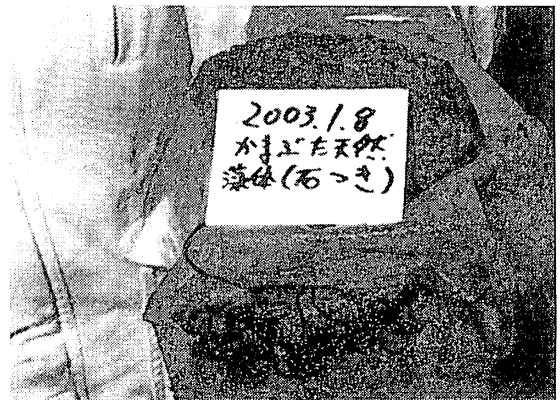 2003.1.8
かまぶた天然
藻体(石つき)